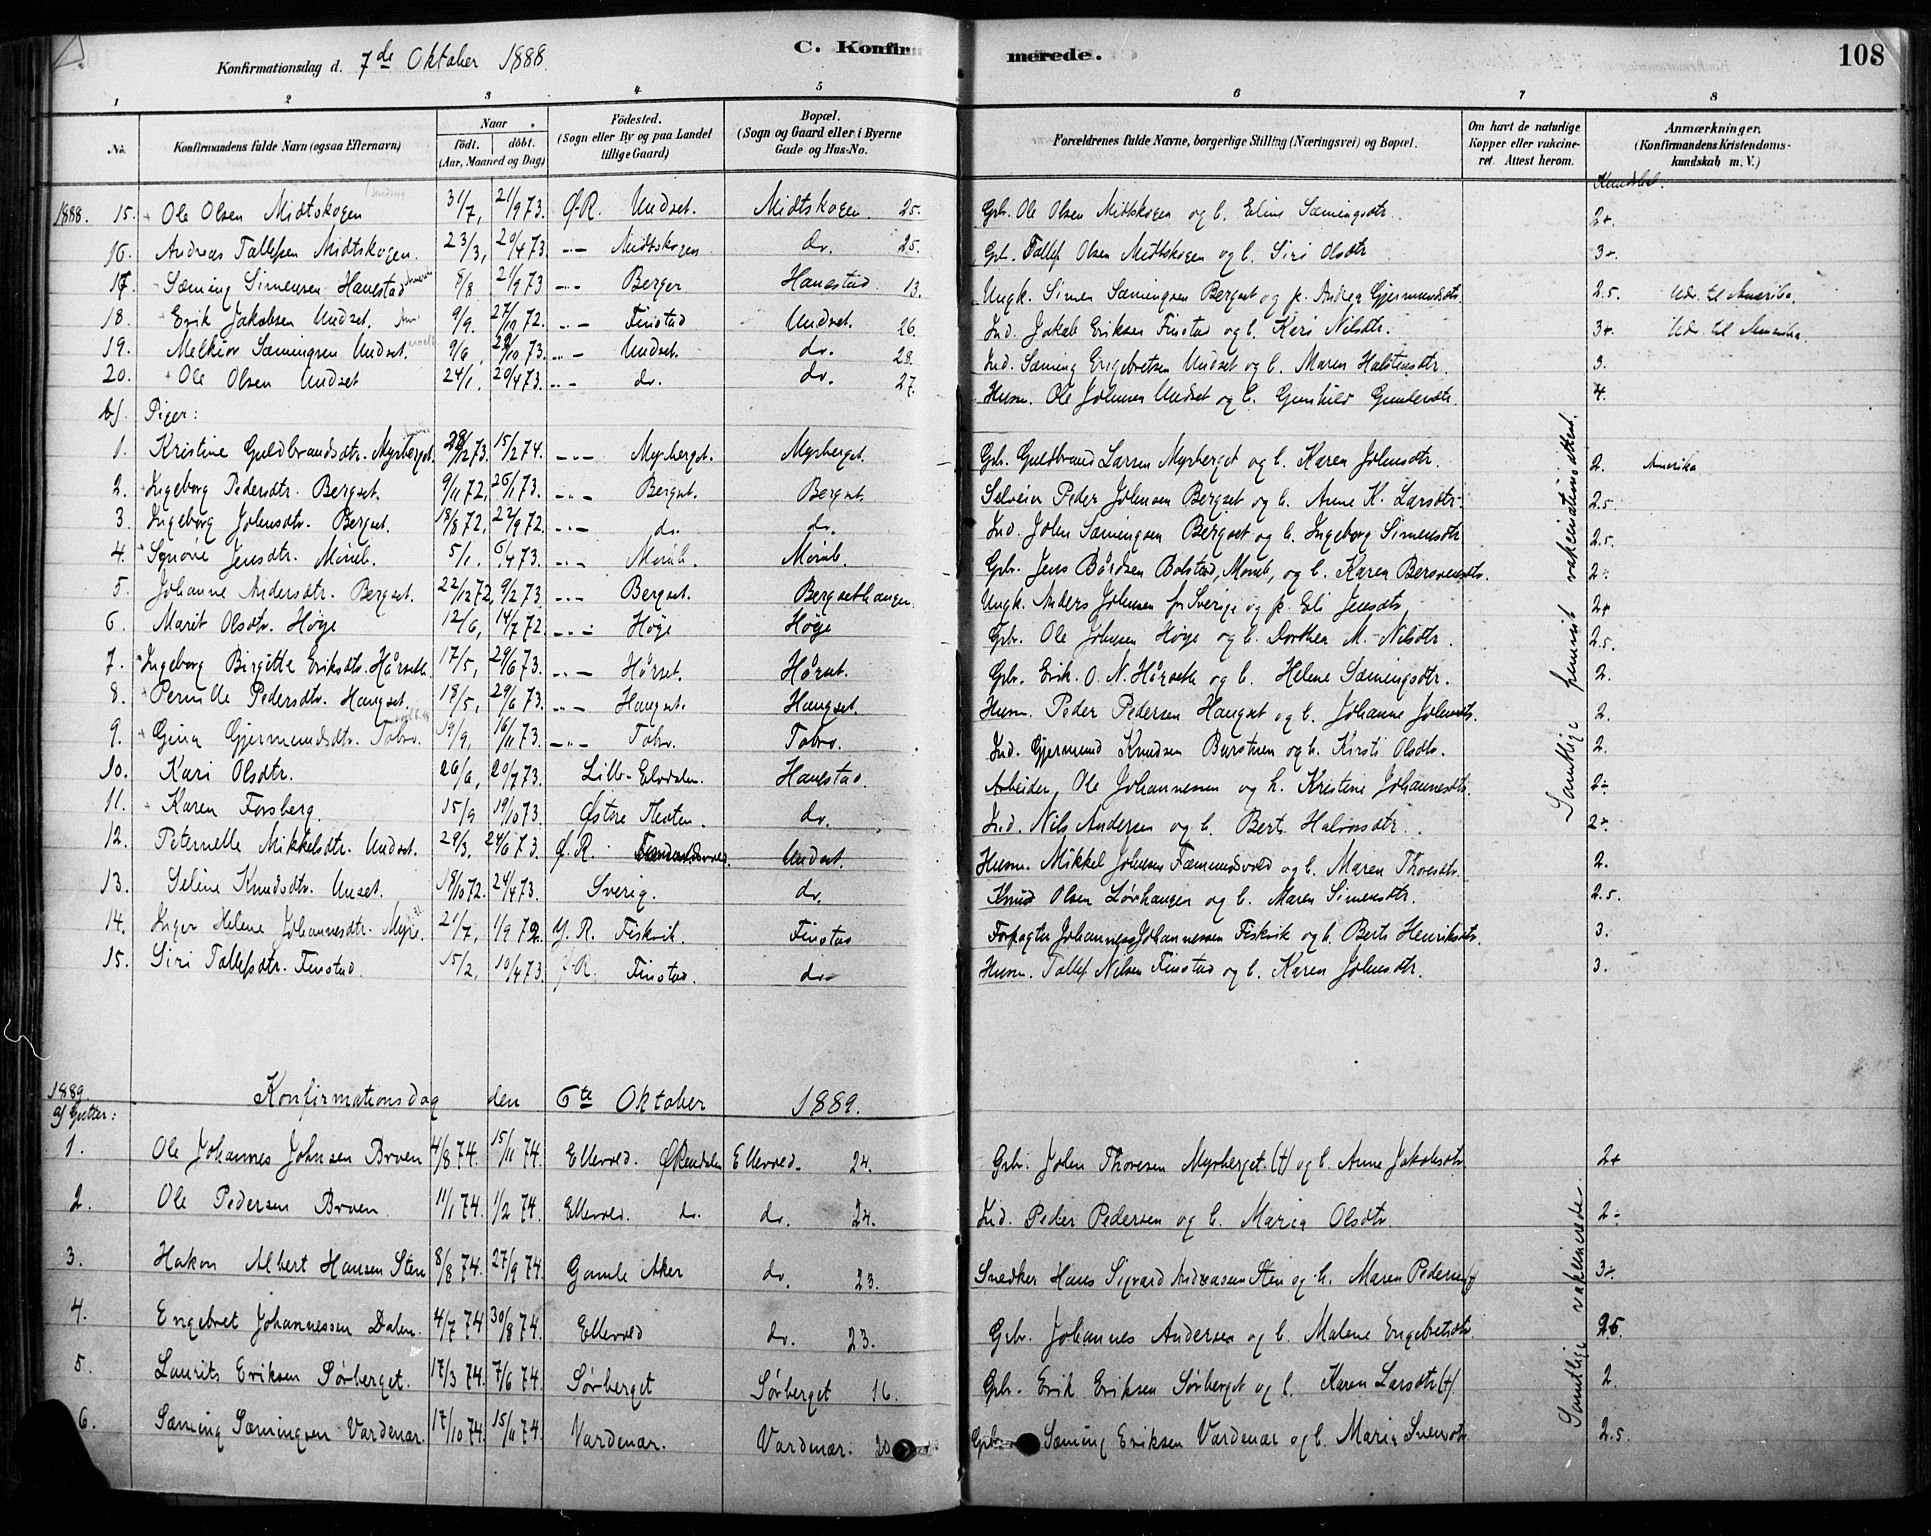 Konfirmationsdag d. 7de Oktober 1888. C. Konfirmerede. 108
1 2 3 4 5 6 7 8
No. Konfirmandens fulde Navn (ogsaa Efternavn) Naar födt. döbt. (Aar, Maaned og Dag) Födested. (Sogn eller By og paa Landet tillige Gaard) Bopæl. (Sogn og Gaard eller i Byerne Gade og Hus-No. Forældrenes fulde Navne, borgerlige Stilling (Næringsvei) og Bopæl. Om havt de naturlige Kopper eller vakcineret. Attest herom. Anmærkninger. (Konfirmandens Kristendomskundskab m. V.)
Kundskab.
1888. 15. Ole Olsen Midtskogen 31/7, 21/9 73. Ø.R. Undset. Midtskogen 25. Gbr. Ole Olsen Midtskogen og h. Eline Sæmingsdtr. 2+
16. Andreas Tallefsen Midtskogen. 23/3, 20/4 73. -"- Midtskogen do. 25. Gbr. Tallef Olsen Midtskogen og h. Siri Olsdtr 3+
17 Sæming Simensen Hanestad 8/8 21/9 73 -"- Berger Hanestad 13. Ungk. Simen Sæmingsen Bergset og p. Andrea Gjermundsdtr. 2.5. Udv. til Amerika.
18. Erik Jakobsen Undset. 9/9. 27/10 72. -"- Finstad Undset. 26. Ind. Jakob Eriksen Finstad og h. Kari Nilsdtr. 3+ Udv. til Amerika.
19. Melkior Sæmingsen Undset. 9/6 /10 73. -"- Undset. do. 28. Ind. Sæming Engebretsen Undset og h. Maren Halstensdtr. 3.
20. Ole Olsen Undset 24/1. 20/4 73. -"- do. do. 27. Husm. Ole Johnsen Undset og h. Gunhild Gundersdtr. 4.
b). Piger:
1. Kristine Guldbrandsdtr. Myrberget. 28/12 73. 15/2 74. -"- Myrberget. Myrberget. Gbr. Guldbrand Larsen Myrberget og h. Karen Johnsdtr. 2. Amerika
2. Ingeborg Pedersdtr. Bergset. 9/11 72, 26/1 73. -"- Bergset. Bergset. Selveier Peder Johnsen Bergset og h. Anne K. Larsdtr. 2.5.
3. Ingeborg Johnsdtr. Bergset. 18/8 72. 22/9 72. -"- do. do. Ind. John Sæmingsen Bergset og h. Ingeborg Simensdtr 2.5.
4. Synøve Jensdtr. Moreb. 5/1. 6/4 73. -"- Moreb. Moreb. Gbr. Jens Bårdsen Bolstad, Moreb, og h. Karen Bersvendsdtr. 2-
5. Johanne Andersdtr. Bergset. 22/12 72, 9/2 73. -"- Bergset. Bergsethaugen Ungk. Anders Johnsen fr Sverige og p. Eli Jensdtr. 2+
6. Marit Olsdtr. Høye 12/6, 14/7 72. -"- Høye Høye Gbr. Ole Johnsen Høye og h. Dorthea M. Nilsdtr. 2.5.
7. Ingeborg Birgitte Eriksdtr. Hårseth 17/5, 29/6 73. -"- Hårset. Hårset. Gbr. Erik O. N. Hårseth og h. Helene Sæmingsdtr. 2.
8. Pernille Pedersdtr. Haugset. 18/5, 29/6 73. -"- Haugset. Haugset. Husm. Peder Pedersen Haugset og h. Johanne Johnsdtr. 2.
9. Gina Gjermundsdtr. Tobro. 19/9, 16/11 73. -"- Tobro. Tobro. Ind. Gjermund Knudsen Burstuen og h. Kirsti Olsdtr. 2.
10. Kari Olsdtr. 26/6, 20/7 73. Lille-Elvdalen. Hanestad. Arbeider, Ole Johannesen og h. Kristine Johannesdtr. 2-
11. Karen Forsberg. 15/9 19/10 73. Østre Thoten. do. Ind. Nils Andersen og h. Berte Halvorsdtr. 2+
12. Peternelle Mikkelsdtr. Undset. 29/3. 24/6 73. Ø.R. Fæmundsvold. Undset. Husm. Mikkel Johnsen Fæmundsvold og h. Maren Thoresdtr. 2.
13. Seline Knudsdtr. Unset. 18/10 72. 24/4 73. Sverig. do. Knud Olsen Lørhaugen og h. Maren Simensdtr. 2.5.
14. Inger Helene Johannesdtr. Myre. 21/7, 1/9 72. Y. R. Fiskvik. Finstad Forpagter Johannes Johannessen Fiskvik og h. Berte Henriksdtr. 3.
15. Siri Tallefsdtr. Finstad. 15/2, 10/4 73. Ø.R. Finstad. do. Husm. Tallef Nilsen Finstad og h. Karen Johnsdtr. 3.
Samtlige fremvist vakcinationsattest.
1889. Konfirmationsdag den 6te Oktober 1889.
a) Gutter:
1. Ole Johannes Johnsen Broen 4/8 74. 15/11 74. Ellevold. Ø Rendalen Ellevold. 24. Gbr. John Thoresen Myrberget (+) og h. Anne Jakobsdtr. 2+
2. Ole Pedersen Broen. 11/1 74. 1/2 74. Ellevold. do. do. 24. Ind. Peder Pedersen og h. Maria Olsdtr. 2-
3. Hakon Albert Hansen Sten 8/8 74. 27/9 74. Gamle Aker do. 23. Snedker Hans Sigvard Andreassen Sten og h. Maren Pedersen 3+
4. Engebret Johannessen Dalen. 4/7 74 30/8 74. Ellevold do. 23. Gbr. Johannes Andersen og h. Malene Engebretsdtr. 2.5.
5. Laurits Eriksen Sørberget. 17/3 74. 7/6 74. Sørberget Sørberget 16. Gbr. Erik Eriksen Sørberget og h. Karen Larsdtr (+). 2.
6. Sæming Sæmingsen Vardenær. 17/10 74. 15/11 74. Vardenær. Vardenær. 20 Gbr. Sæming Eriksen Vardenær og h. Maria Svensdtr. 2.5.
Samtlige vakcinerede.